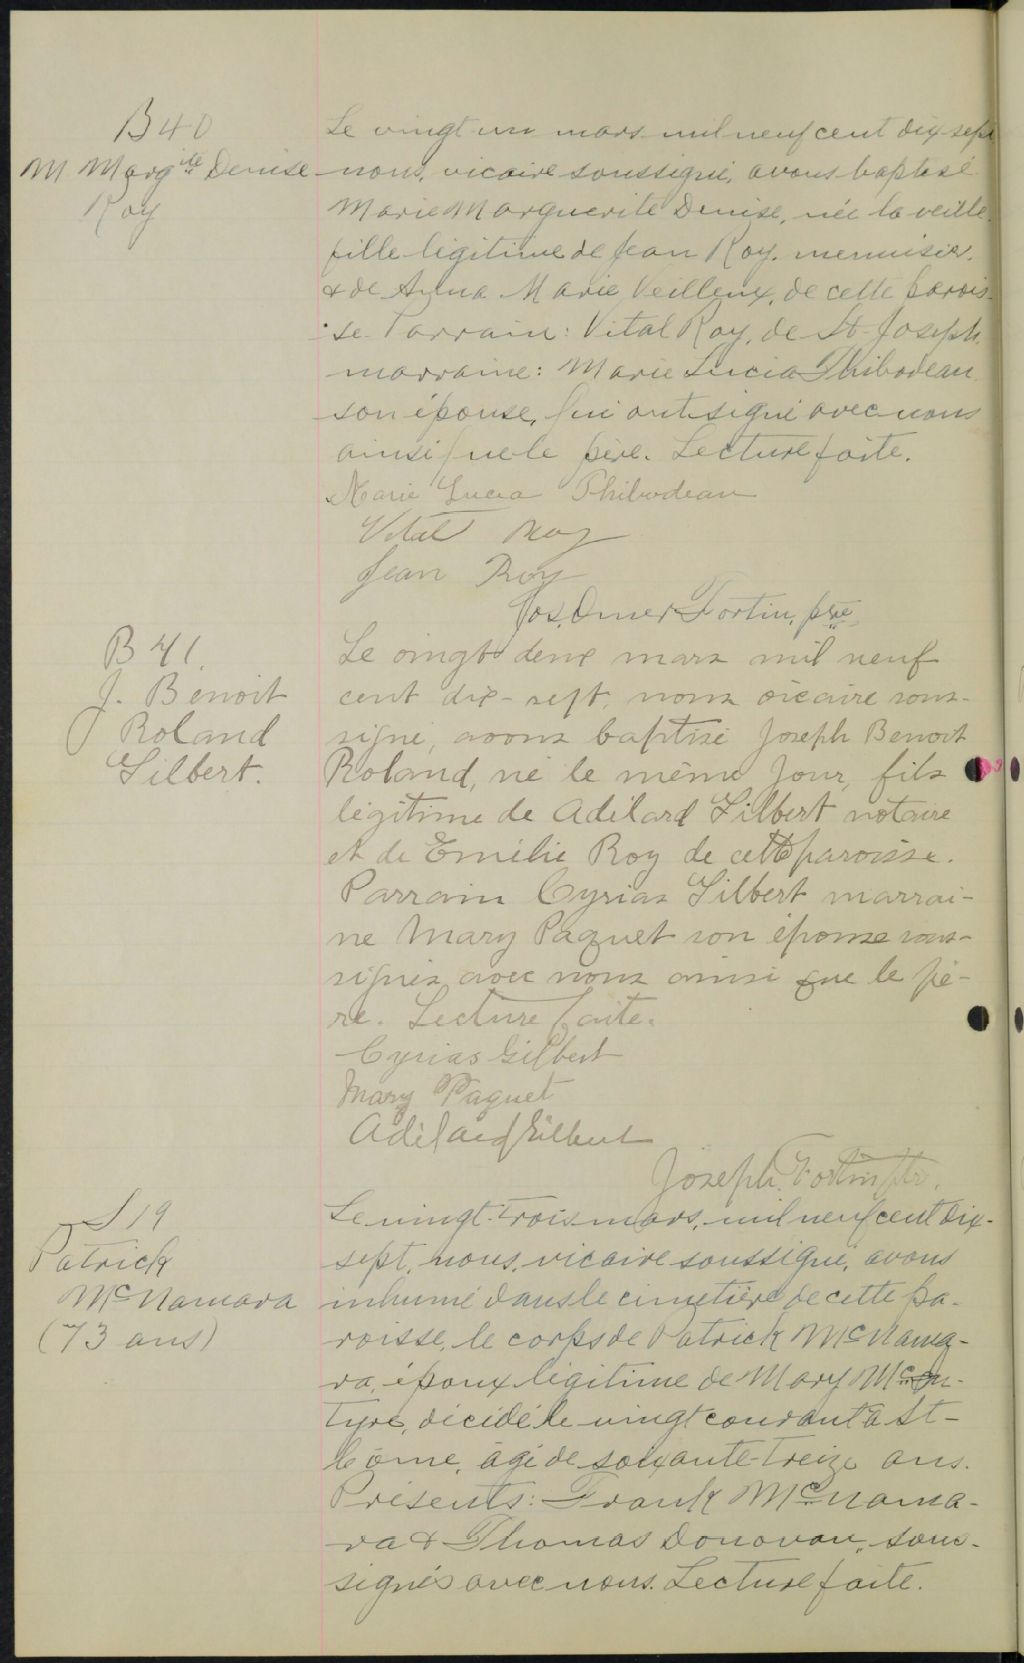 B 40
M Marg.ite Denise
Roy
Le vingt-un mars mil neuf cent dix-sept
nous, vicaire soussigné, avons baptisé
Marie Marguerite Denise, née la veille
fille légitime de Jean Roy, menuisier,
& de Anna Marie Veilleux, de cette parois-
se. Parrain: Vital Roy, de St-Joseph,
marraine: Marie Lucia Thibodeau
son épouse, qui ont signé avec nous
ainsi que le père. Lecture faite.
Marie Lucia Thibodeau
Vital Roy
Jean Roy
Jos. Omer Fortin, ptre
B 41.
J. Benoit
Roland
Gilbert.
Le vingt deux mars mil neuf
cent dix-sept, nous vicaire sous-
signé, avons baptisé Joseph Benoit
Roland, né le même jour, fils
légitime de Adélard Gilbert notaire
et de Emélie Roy de cette paroisse.
Parrain Cyrias Gilbert marrai-
ne Mary Paquet son épouse sous-
signés avec nous ainsi que le pè-
re. Lecture faite.
Cyrias Gilbert
Mary Paquet
Adélard Gilbert
Joseph Fortin ptre.
S 19
Patrick
McNamara
(73 ans)
Le vingt-trois mars, mil neuf cent dix-
sept, nous, vicaire soussigné, avons
inhumé dans le cimetière de cette pa-
roisse, le corps de Patrick McNama-
ra, époux légitime de Mary Mc
tyre, décédé le vingt courant à St-
Côme, âgé de soixante-treize ans.
Présents: Frank McNama-
ra & Thomas Donovan, sous-
signés avec nous. Lecture faite.